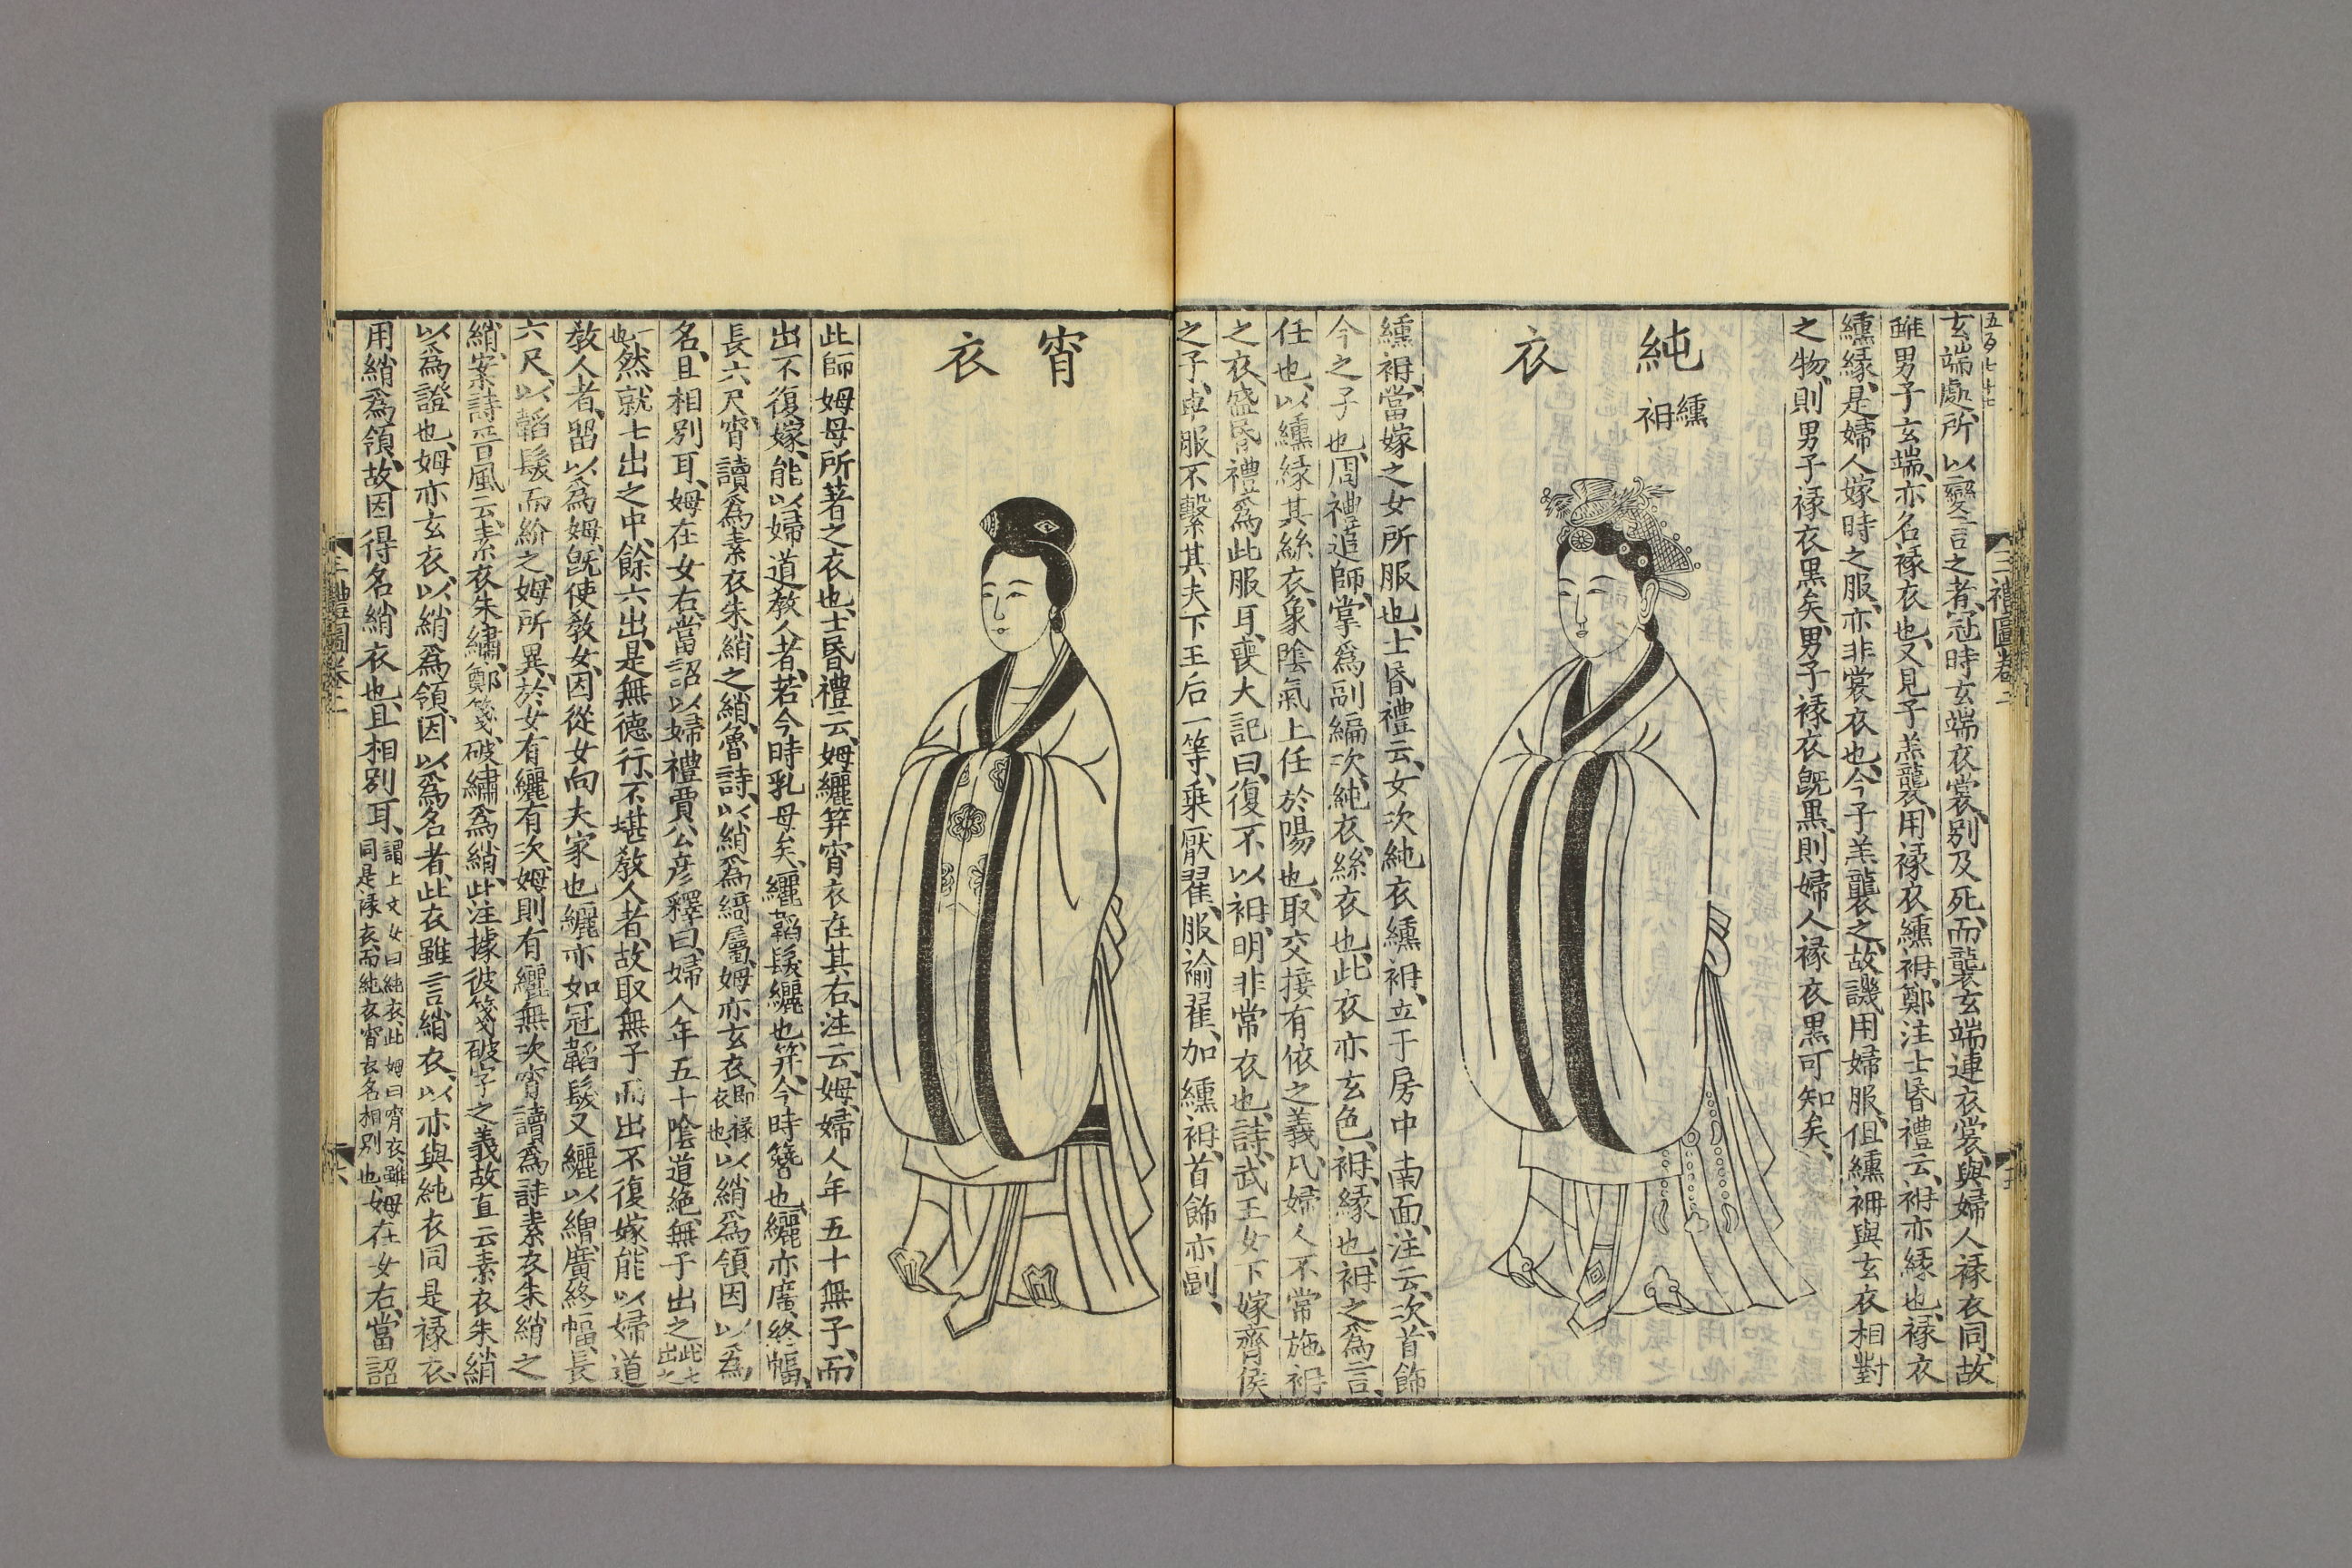 玄端處所以變言之者冠時玄端衣裳别及死而襲玄端連衣裳與婦人褖衣同故
雖男子玄端亦名褖衣也又見子羔襲用褖衣纁袡鄭注士昏禮云袡亦緣也褖衣
纁緣是婦人嫁時之服亦非裳衣也今子羔襲之故譏用婦服但纁袡與玄衣相對
之物則男子褖衣黑矣男子褖衣旣黒則婦人褖衣黒可知矣
純衣
纁袡
纁袡當嫁之女所服也士昏禮云女次純衣纁袡立于房中南面注云次首飾
今之子也周禮追師掌爲副編次純衣絲衣也此衣亦玄色袡緣也袡之爲言
任也以纁緣其絲衣象陰氣上任於陽也取交接有依之義凡婦人不常施袡
之衣盛昏禮爲此服耳喪大記曰復不以袡明非常衣也詩武王女下嫁齊侯
之子車服不繫其夫下王后一等乗厭翟服褕翟加纁袡首飾亦副
三禮圖卷二
宵衣
此師姆母所著之衣也士昏禮云姆纚笄宵衣在其右注云姆婦人年五十無子而
出不復嫁能以婦道敎人者若今時乳母矣纚韜髮纚也笄今時簪也纚亦廣終幅
長六尺宵讀爲素衣朱綃之綃魯詩以綃爲綺屬姆亦玄衣即褖衣也以綃爲領因以爲
名且相别耳姆在女右當詔以婦禮賈公彦釋曰婦人年五十陰道絶無子出之此七出之
一也然就七出之中餘六出是無德行不堪敎人者故取無子而出不復嫁能以婦道
敎人者留以爲姆旣使敎女因從女向夫家也纚亦如冠韜髮又纚以繒廣終幅長
六尺以韜髮而紒之姆所異於女有纚有次姆則有纚無次宵讀爲詩素衣朱綃之
綃案詩晉風云素衣朱繡鄭箋破繡爲綃此注據彼箋破字之義故直云素衣朱綃
以爲證也姆亦玄衣以綃爲領因以爲名者此衣雖言綃衣以亦與純衣同是褖衣
用綃爲領故因得名綃衣也且相别耳謂上文女曰純衣此姆曰宵衣雖同是褖衣而純衣宵衣名相别也姆在女右當詔